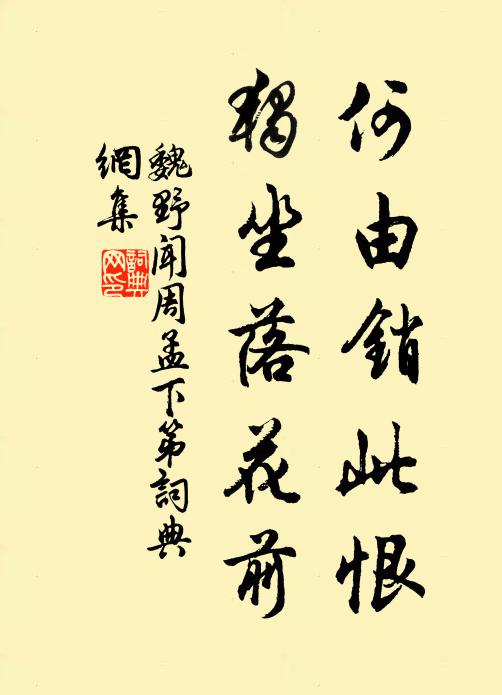 何由銷此恨
獨坐落花前
魏野聞周孟下第詞典
網集
詞典
网印